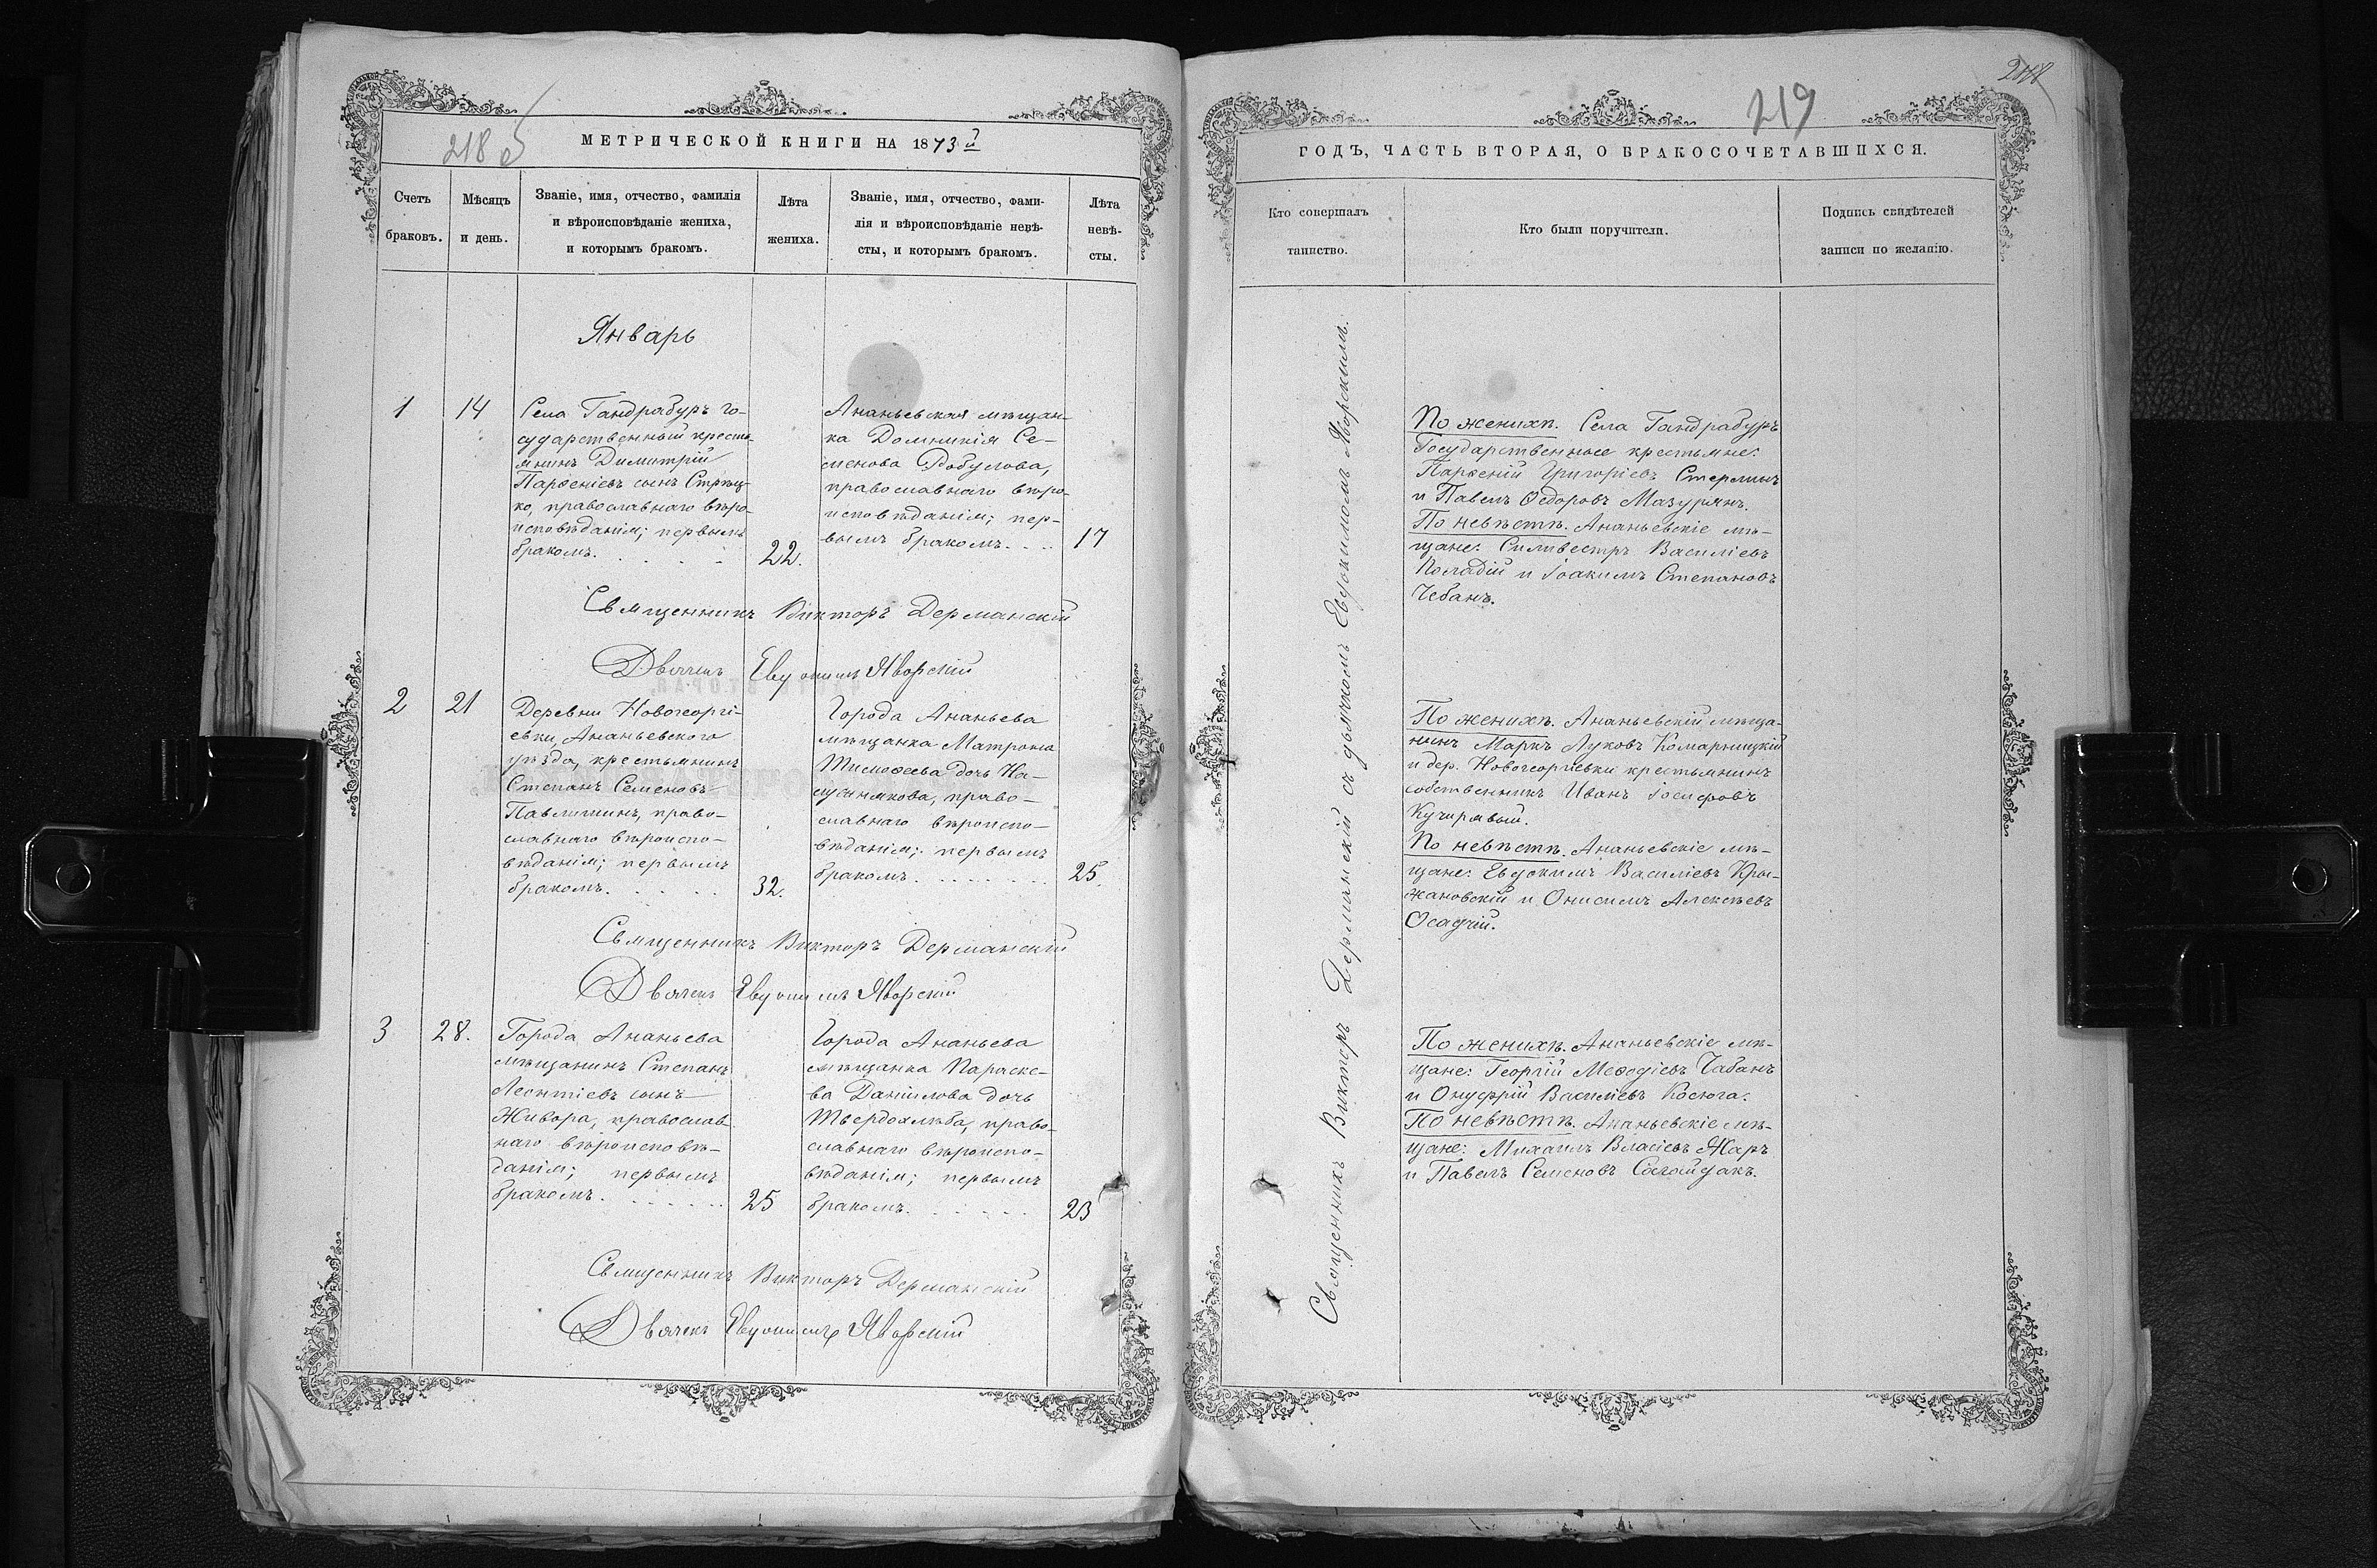 218 б
МЕТРИЧЕСКОЙ КНИГИ НА 1873й
Счетъ
браковъ.
Мѣсяцъ
и день.
Званіе, имя, отчество, фамилія
и вѣроисповѣданіе жениха,
и которымъ бракомъ.
Лѣта
жениха.
Званіе, имя, отчество, фами-
лія и вѣроисповѣданіе невѣ-
сты, и которымъ бракомъ.
Лѣта
невѣ-
сты.
Январь
1
14
Села Гандрабуръ го-
сударственный кресть-
янинъ Димитрій
Парѳеніевъ сынъ
ко, православнаго вѣро-
исповѣданія; первымъ
бракомъ.
22.
Ананьевская мѣщан-
ка Домникія Се-
менова Робулова,
православнаго вѣро-
исповѣданія; пер-
вымъ бракомъ.
17
Священникъ Викторъ Дерманскій
Дьячекъ Евдокимъ Яворскій
2
21
Деревни Новогеоргі-
евки, Ананьевского
уѣзда, крестьянинъ
Степанъ Семеновъ
Павлишинъ, право-
славнаго вѣроиспо-
вѣданія; первымъ
бракомъ.
32.
Города Ананьева
мѣщанка Матрона
Тимоѳеева дочь На-
право-
славнаго вѣроиспо-
вѣданія; первымъ
бракомъ
25.
Священникъ Викторъ Дерманскій
Дьячекъ Евдокимъ Яворскій
3
28.
Города Ананьева
мѣщанинъ Степанъ
Леонтіевъ сынъ
Живора, православ-
наго вѣроисповѣ-
данія; первымъ
бракомъ.
25
Города Ананьева
мѣщанка Параске-
ва Даніилова дочь
Твердохлѣба, право-
славнаго вѣроиспо-
вѣданія; первымъ
бракомъ.
23
Священникъ Викторъ Дерманскій
Дьячекъ Евдокимъ Яворскій
219
ГОДЪ, ЧАСТЬ ВТОРАЯ, О БРАКОСОЧЕТАВШИХСЯ.
Кто совершалъ
таинство.
Кто были поручители.
Подпись свидѣтелей
записи по желанію.
Священникъ Викторъ Дерманскій съ дьячкомъ Евдокимомъ Яворскимъ.
По женихѣ. Села Гандрабуръ
Государственные крестьяне:
Парѳеній Григоріевъ Стерлинъ
и Павелъ Ѳедоровъ Мазурянъ.
По невѣстѣ. Ананьевскіе мѣ-
щане: Силивестръ Василіевъ
Поладій и Іоакимъ Степановъ
Чебанъ.
По женихѣ. Ананьевскій мѣща-
нинъ Маркъ Луковъ Комарницкій
и дер. Новогеоргіевки крестьянинъ
собственникъ Иванъ Іосифовъ
Кучирявый.
По невѣстѣ. Ананьевскіе мѣ-
щане: Евдокимъ Василіевъ Кры-
жановскій и Онисимъ Алексѣевъ
Осадчій.
По женихѣ. Ананьевскіе мѣ-
щане: Георгій Меѳодіевъ Чабанъ
и Онуфрій Василіевъ Косюга.
По невѣстѣ. Ананьевскіе мѣ-
щане: Михаилъ Власіевъ Жаръ
и Павелъ Семеновъ Сагайдакъ.